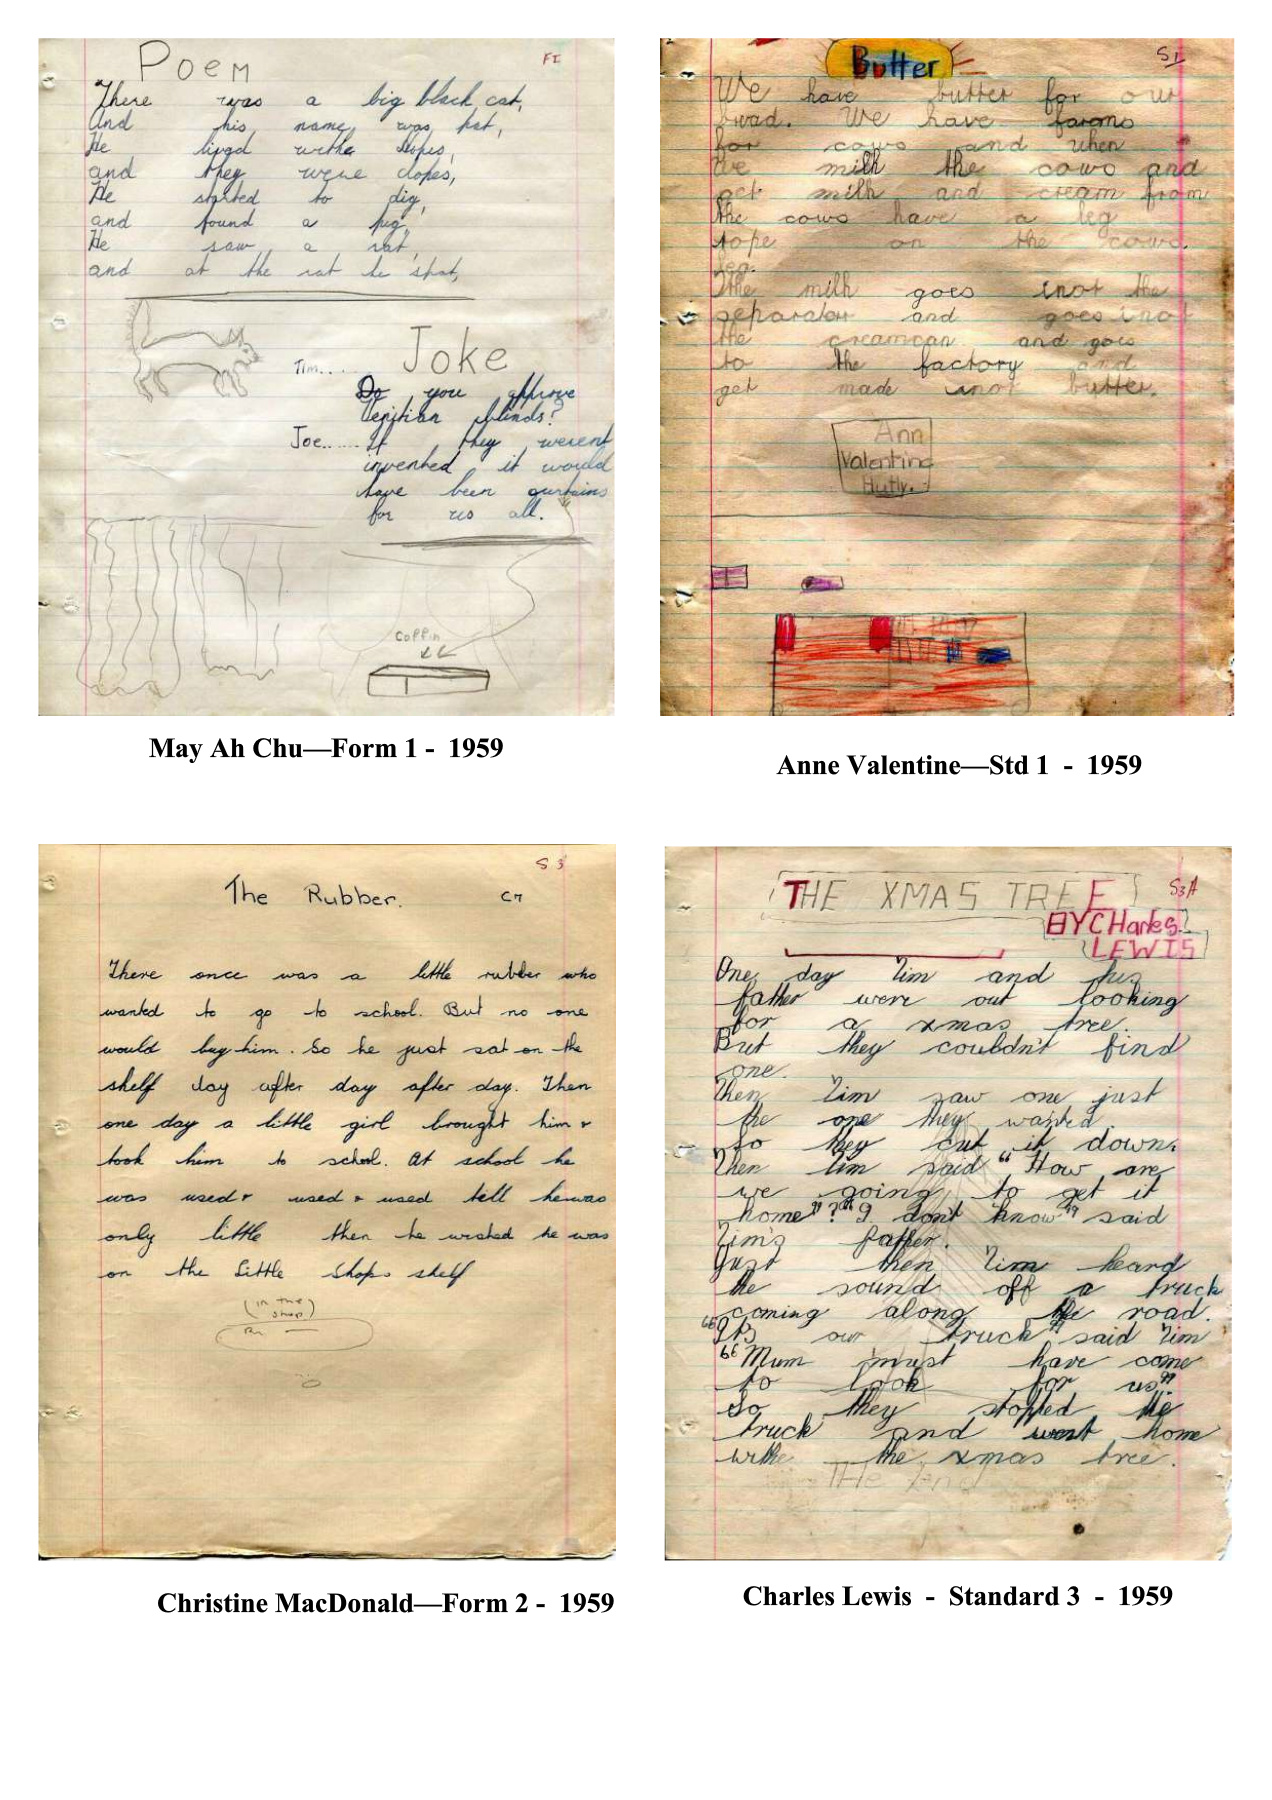 Poem
F I
There was a big black cat,
And his name was pat,
He lived withe
and they were dopes,
He started to dig,
and found a pig,
He saw a rat,
and at the rat he spat,
Joke
Tim....
Do you approve
blinds?
Joe...... If they werent
invented it would
have been curtains
for us all.
Coffin
May Ah Chu—Form 1 - 1959
Butter
S1
We have butter for our
bread. We have farms
for cows and when
we milk the cows and
get milk and cream from
the cows have a leg
rope on the cows
leg.
the milk goes inot the
separator and goes inot
the creamcan and goes
to the factory and
get made inot butter.
Ann
Valentine
Anne Valentine—Std 1 - 1959
S 3
The Rubber.
There once was a little rubber who
wanted to go to school. But no one
would buy him. So he just sat on the
shelf day after day after day. Then
one day a little girl brought him &
took him to school. At school he
was used & used & used tell he was
only little then he wished he was
on the Little Shops shelf
(in the
shop)
Christine MacDonald—Form 2 - 1959
THE XMAS TREE
S3A
BY CHarles
LEWIS
One day Tim and his
father were out looking
for a xmas tree.
But they couldn't find
one.
Then Tim saw one just
the one they wanted.
So they cut it down.
Then Tim said "How are
we going to get it
home"? "I don't know" said
Tim's father.
Just then Tim heard
the sound off a truck
coming along the road.
"It's our truck" said Tim
"Mum must have come
to look for us"
So they stopped the
truck and went home
withe the xmas tree.
The End
Charles Lewis - Standard 3 - 1959